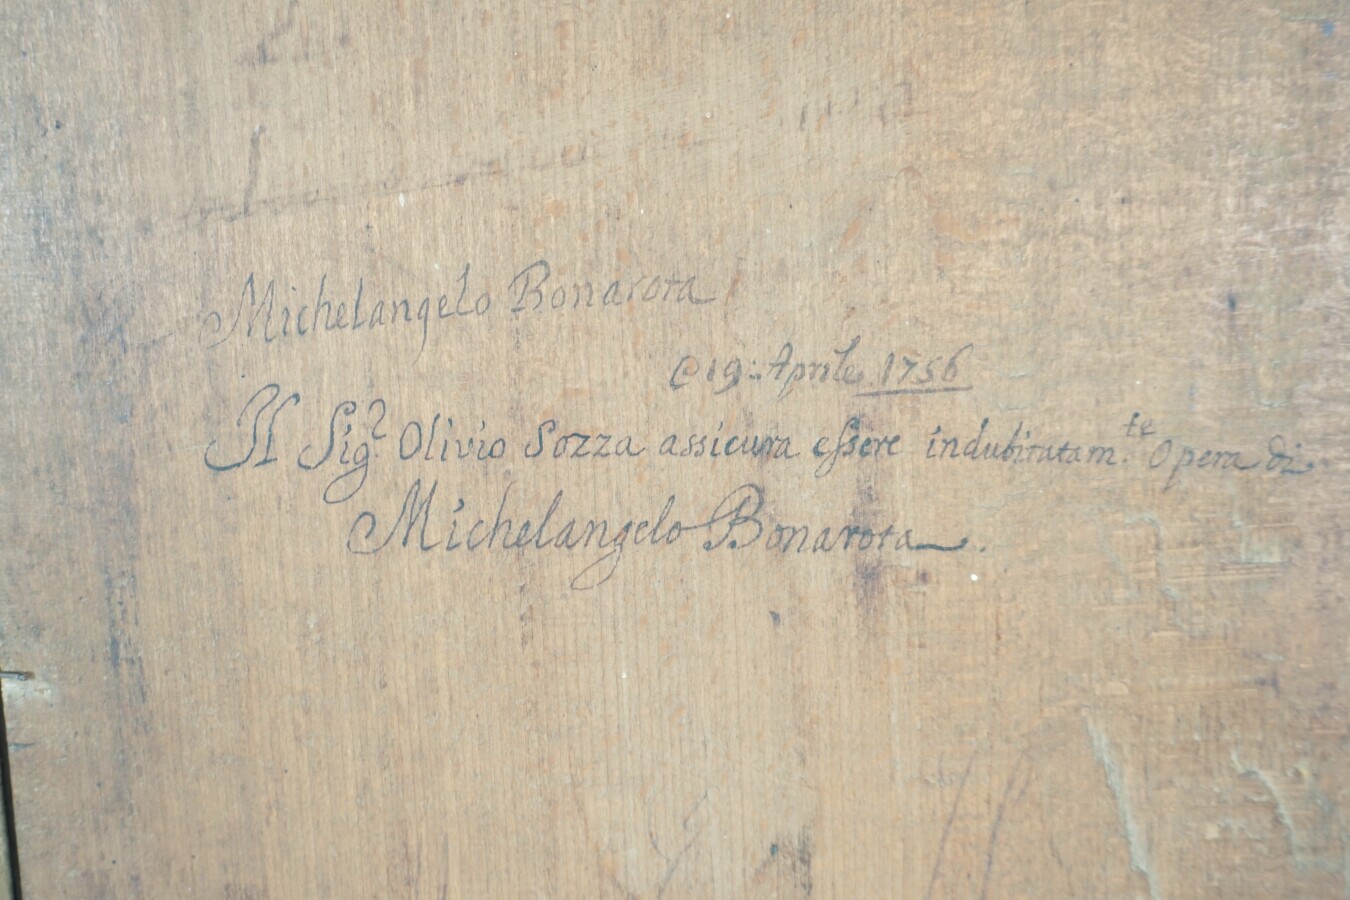 Michelangelo Bonarota
@ 19: Aprile 1756
Il Sig.r Olivio Sozza assicura essere indubitatam.te Opera di
Michelangelo Bonarota.